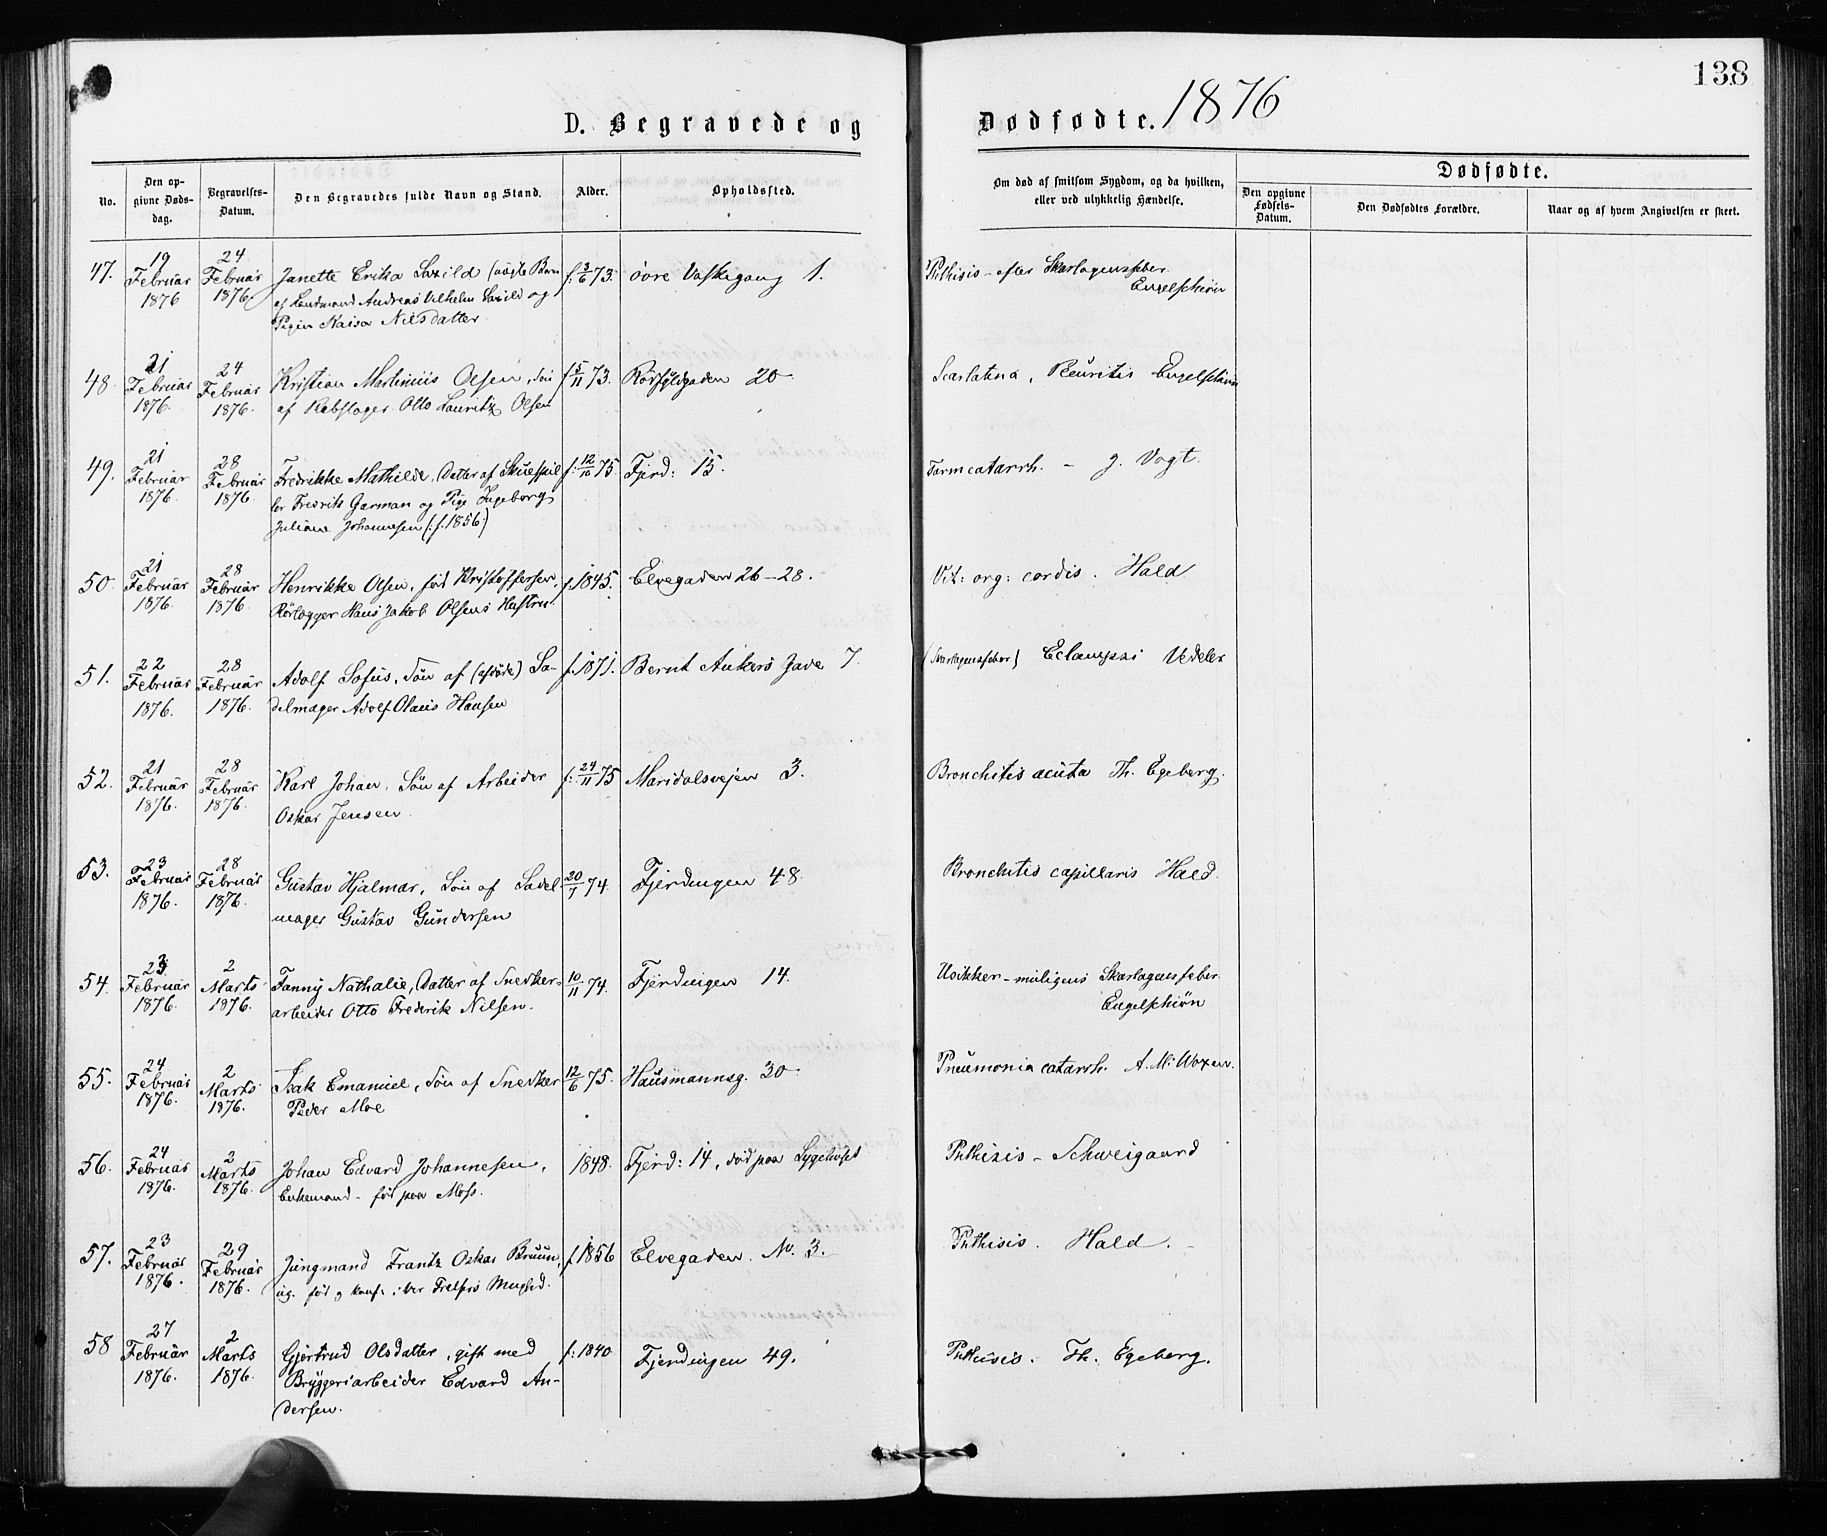 138
D. Begravede og Dødfødte. 1876
No.
Den opgivne Dødsdag.
Begravelses-Datum.
Den Begravedes fulde Navn og Stand.
Alder.
Opholdssted.
Om død af smitsom Sygdom, og da hvilken, eller ved ulykkelig Hændelse.
Dødfødte.
Den opgivne Fødsels-Datum.
Den Dødfødtes Forældre.
Naar og af hvem Angivelsen er skeet.
47. 19 Februar 1876 24 Februar 1876. Janette Erika Saxild (uægte Barn f. 3/6 73. övre Vaskegang 1. Phthisis – efter Skarlagensfeber. Engelschiön
af Landmand Andreas Vilhelm Saxild og
Pigen Kaisa Nilsdatter.
48. 21 Februar 1876. 24 Februar 1876. Kristian Martinius Olsen, Sön f 5/11 73. Rörfyldgaden 20 Scarlatina, Pleuritis Engelschiön
af Rebslager Otto Lauritz Olsen
49. 21 Februar 1876. 28 Februar 1876. Fredrikke Mathilde, Datter af Skuespil f: 12/10 75 Fjerd: 15. Tarmcatarrh. – J. Vogt.
ler Fredrik Garman og Pige Ingeborg
Juliane Johannesen (: f. 1856:)
50. 21 Februar 1876. 28 Februar 1876. Henrikke Olsen, föd Kristoffersen, f. 1845. Elvegaden 26–28. Vit: org: cordis. Hald
Rörlægger Hans Jakob Olsens Hustru.
51. 22 Februar 1876. 28 Februar 1876. Adolf Sofus, Sön af (afdöde) Sa- f. 1871. Bernt Ankers Gade 7. (Skarlagensfeber) Eclampsi Vedeler
delmager Adolf Olaus Hansen
52. 21 Februar 1876. 28 Februar 1876. Karl Johan, Sön af Arbeider f: 24/11 75 Maridalsvejen 3. Bronchitis acuta Th. Egeberg.
Oskar Jensen
53. 23 Februar 1876. 28 Februar 1876. Gustav Hjalmar, Sön af Sadel- 20/7 74. Fjerdingen 48. Bronchitis capillaris Hald.
mager Gustav Gundersen
54. 23 Februar 1876. 2 Marts 1876. Fanny Nathalie, Datter af Snedker- 10/11 74. Fjerdingen 14. Usikker – muligens Skarlagensfeber. Engelschiön
arbeider Otto Frederik Nilsen.
55. 24 Februar 1876. 2 Marts 1876. Isak Emanuel, Sön af Snedker 12/6 75. Hausmannsg. 30 Pneumonia catarrh. A. M: Woxen.
Peder Moe
56. 24 Februar 1876. 2 Marts 1876. Johan Edvard Johannesen, 1848. Fjerd: 14, död paa Sygehuset Phthisis – Schweigaard
Enkemand – föd paa Moss.
57. 23 Februar 1876. 29 Februar 1876. Jungmand Frantz Oskar Bruun, f. 1856 Elvegaden. No. 3. Phthisis. Hald.
ug. föd og konf. i Vor Frelsers Meghed.
58 27 Februar 1876. 2 Marts 1876. Gjertrud Olsdatter, gift med f: 1840 Fjerdingen 49. Phthisis. Th. Egeberg.
Bryggeriarbeider Edvard An-
dersen.